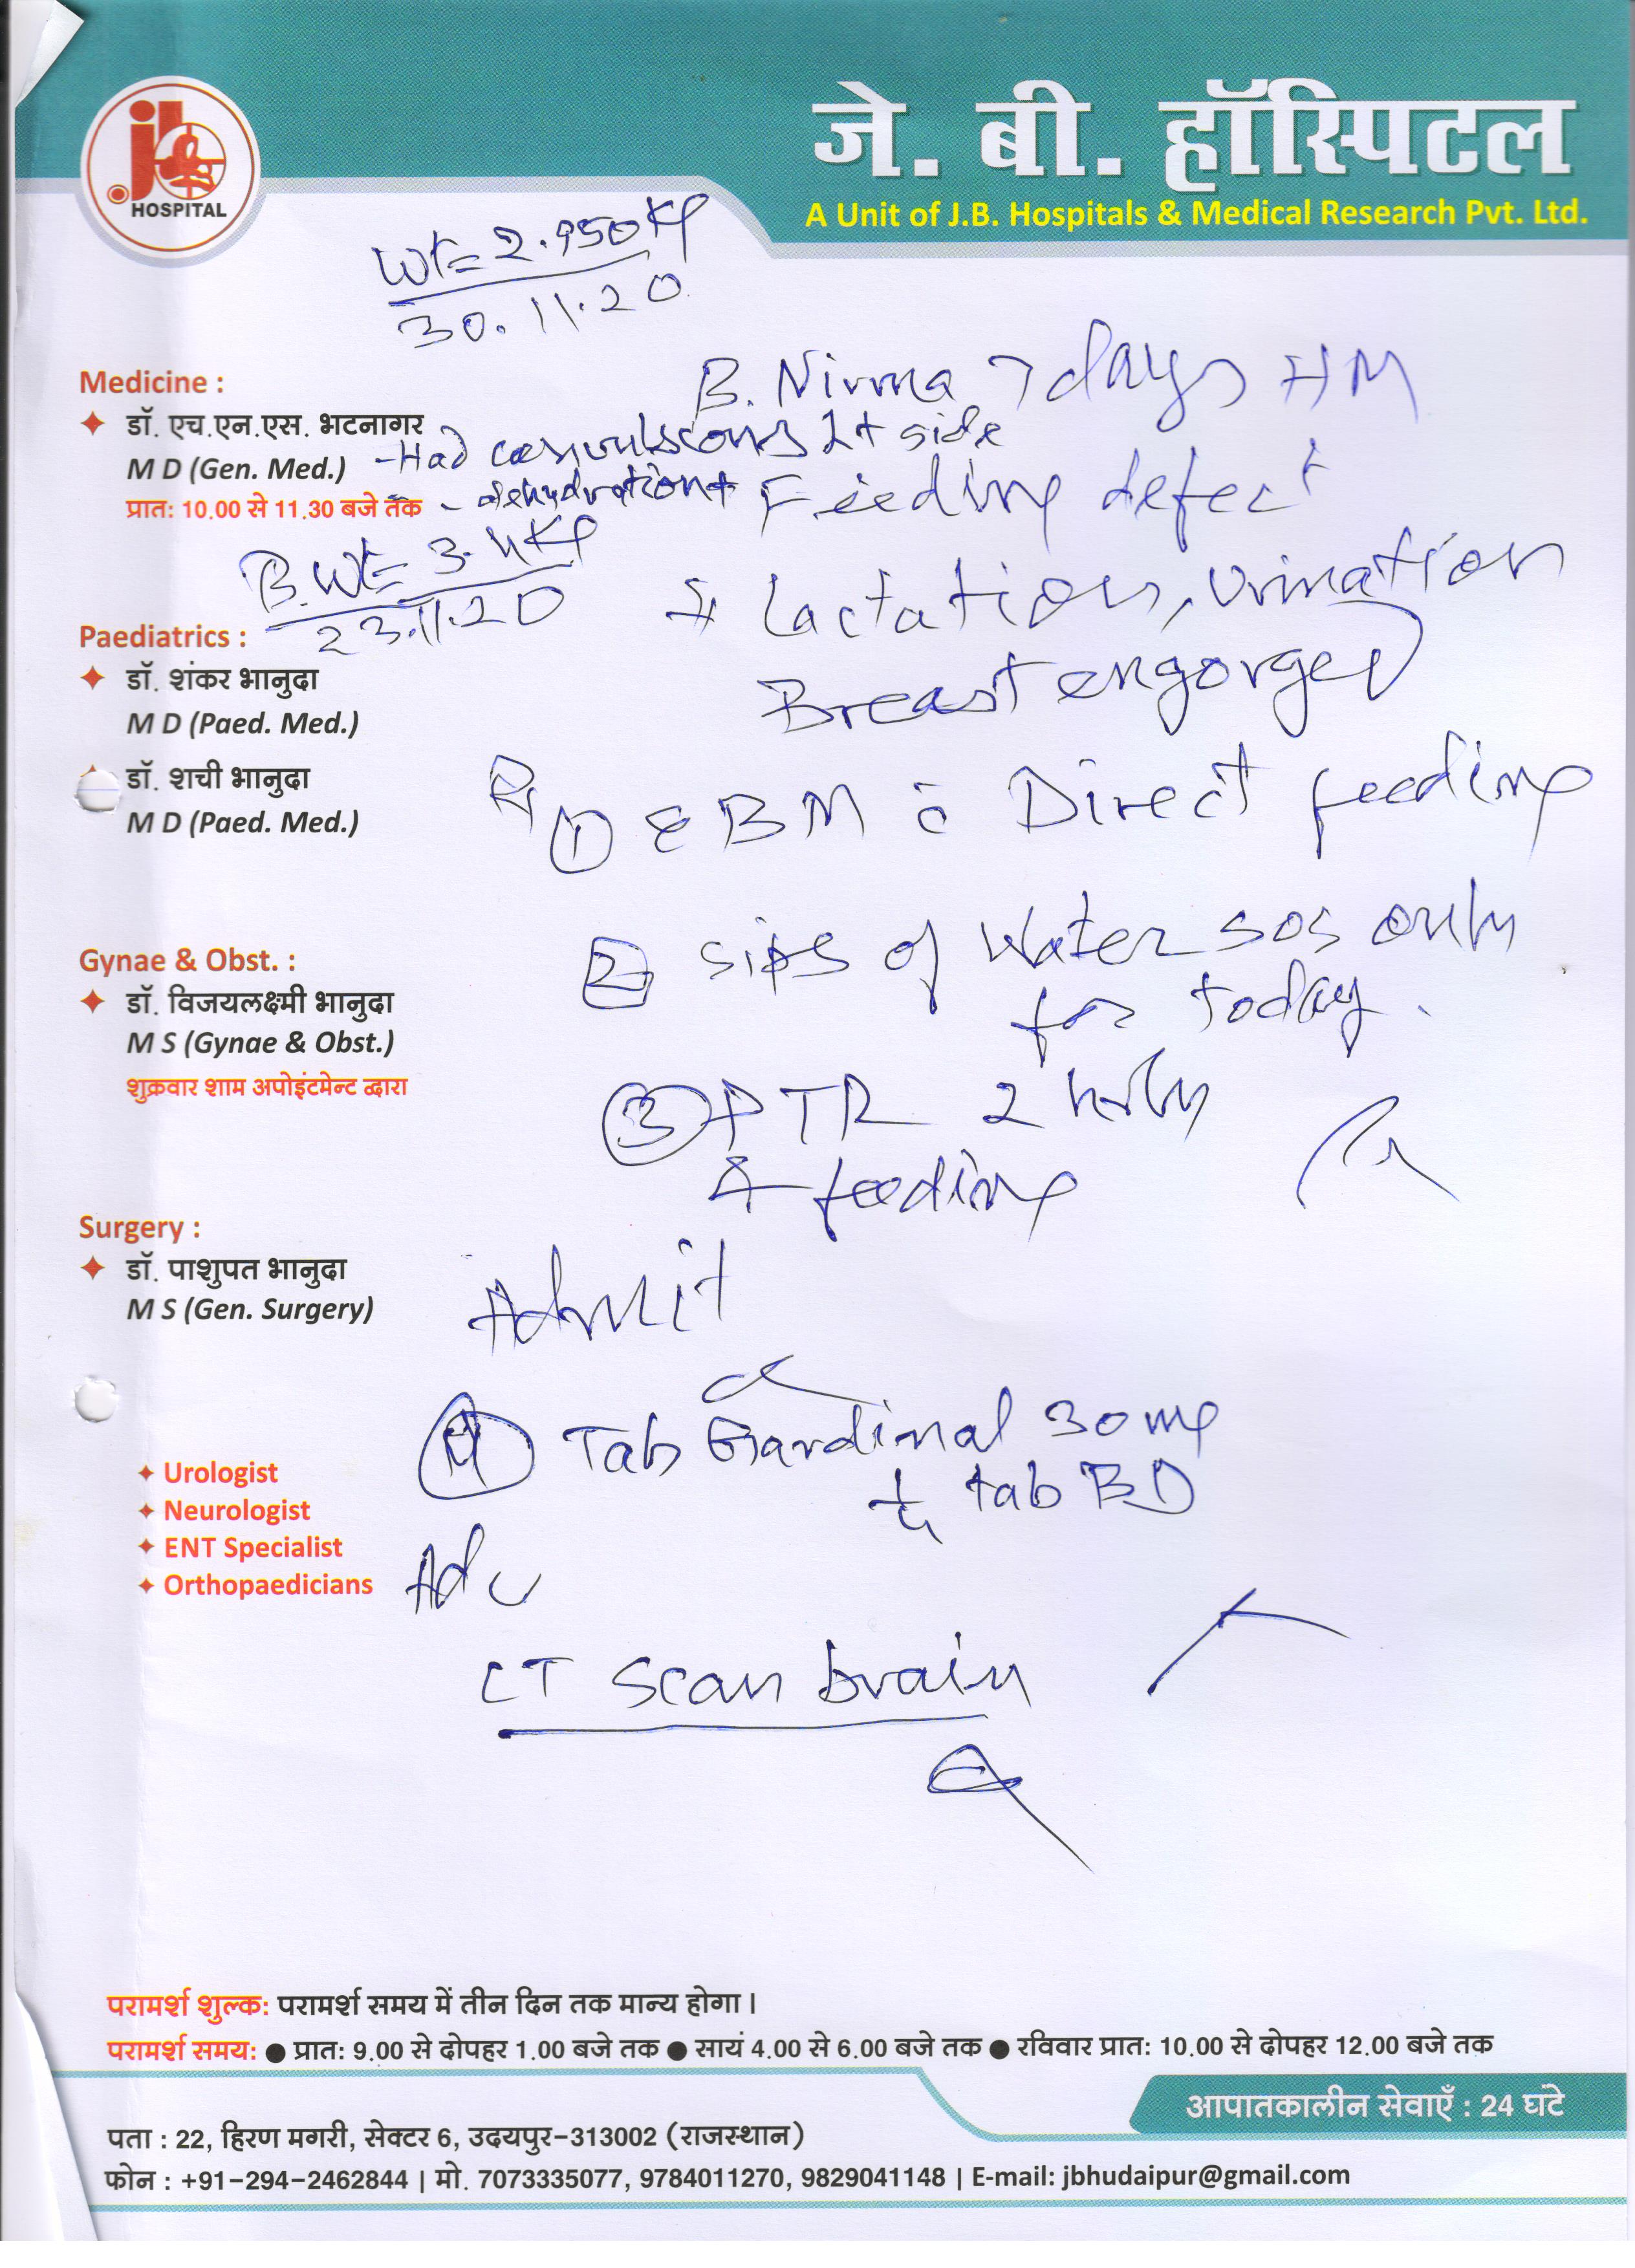 HOSPITAL
जे. बी. हॉस्पिटल
A Unit of J.B. Hospitals & Medical Research Pvt. Ltd.
Wt = 2.950 Kg
30.11.20
B. Nirma 7 days HM
Medicine :
डॉ. एच.एन.एस. भटनागर
M D (Gen. Med.)
प्रातः 10.00 से 11.30 बजे तक
- Had convulsions Lt side
- dehydration+
Feeding defect
B.Wt = 3.4 Kg
23.11.20
Lactation, urination
Breast engorged
Paediatrics :
डॉ. शंकर भानुदा
M D (Paed. Med.)
डॉ. शची भानुदा
M D (Paed. Med.)
① EBM c̄ Direct feeding
2 sips of Water SOS only
for today.
Gynae & Obst. :
डॉ. विजयलक्ष्मी भानुदा
M S (Gynae & Obst.)
शुक्रवार शाम अपोइंटमेन्ट द्वारा
③ PTR 2 hrly
feeding
Surgery :
डॉ. पाशुपत भानुदा
M S (Gen. Surgery)
Admit
④ Tab Gardinal 30 mg
tab BD
Urologist
Neurologist
ENT Specialist
Orthopaedicians
Adv
CT Scan brain
परामर्श शुल्क: परामर्श समय में तीन दिन तक मान्य होगा ।
परामर्श समय: ● प्रातः 9.00 से दोपहर 1.00 बजे तक ● सायं 4.00 से 6.00 बजे तक ● रविवार प्रातः 10.00 से दोपहर 12.00 बजे तक
आपातकालीन सेवाएँ : 24 घंटे
पता : 22, हिरण मगरी, सेक्टर 6, उदयपुर-313002 (राजस्थान)
फोन : +91-294-2462844 | मो. 7073335077, 9784011270, 9829041148 | E-mail: jbhudaipur@gmail.com